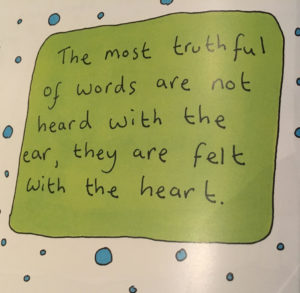 The most truthful
of words are not
heard with the
ear, they are felt
with the heart.